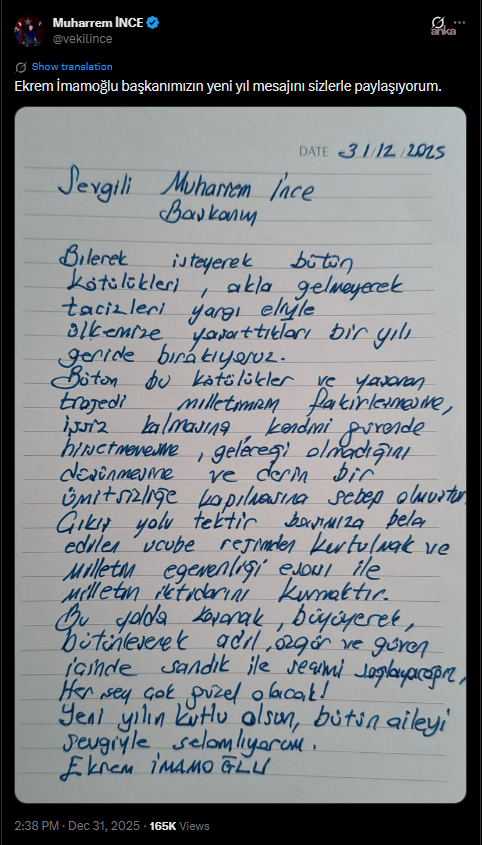 Muharrem İNCE
@vekilince
anka
Show translation
Ekrem İmamoğlu başkanımızın yeni yıl mesajını sizlerle paylaşıyorum.
DATE 31/12/2025
Sevgili Muharrem İnce
Başkanım
Bilerek isteyerek bütün
kötülükleri, akla gelmeyecek
tacizleri yargı eliyle
ülkemize yaşattıkları bir yılı
geride bırakıyoruz.
Bütün bu kötülükler ve yaşanan
trajedi milletimizin fakirleşmesine,
işsiz kalmasına, kendini güvende
hissetmemesine, geleceği olmadığını
düşünmesine ve derin bir
ümitsizliğe kapılmasına sebep olmuştur.
Çıkış yolu tektir başımıza bela
edilen ucube rejimden kurtulmak ve
milletin egemenliği esası ile
milletin iktidarını kurmaktır.
Bu yolda koşarak, büyüyerek,
bütünleşerek adil, özgür ve güven
içinde sandık ile seçimi sağlayacağız,
Her şey çok güzel olacak!
Yeni yılın kutlu olsun, bütün aileyi
sevgiyle selamlıyorum.
Ekrem İMAMOĞLU
2:38 PM · Dec 31, 2025 · 165K Views